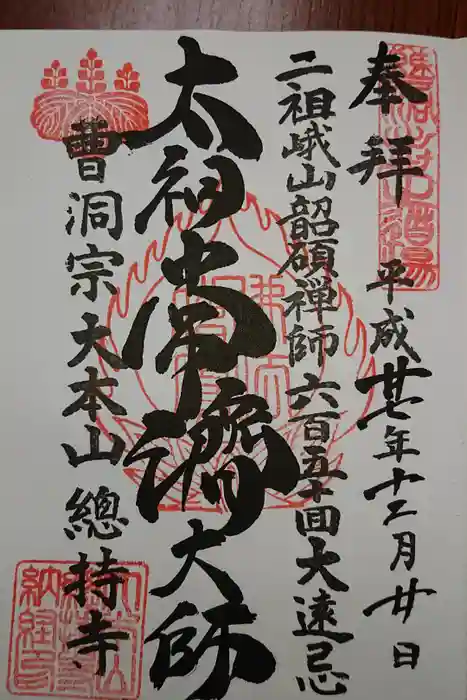 奉拜
平成廿七年十二月廿日
二祖峨山韶碩禅師六百五十回大遠忌
太祖常濟大師
曹洞宗大本山總持寺